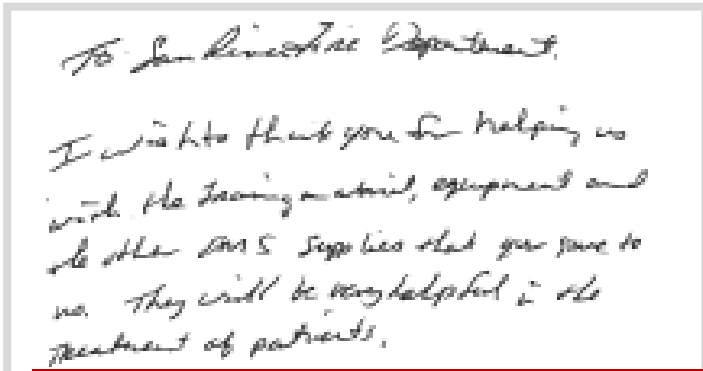 To San Ramon Fire Department.
I wish to thank you for helping us
with the training material, equipment and
the other EMS supplies that you gave to
us. They will be very helpful in the
treatment of patients.